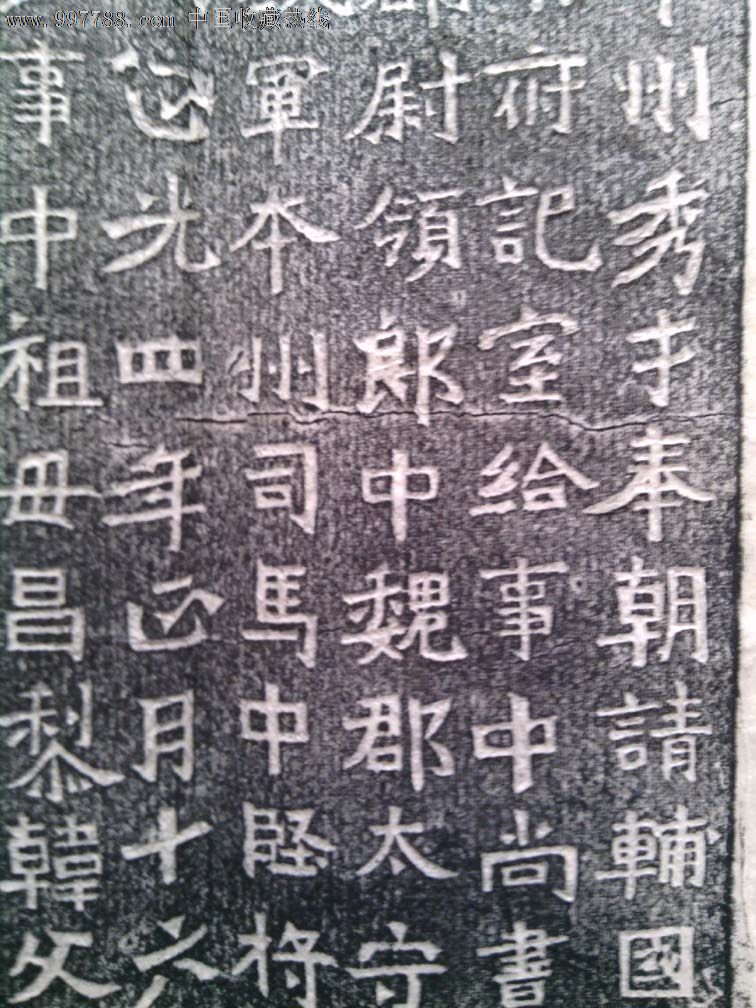 www.997788.com 中国收藏热线
州秀才奉朝請輔國
府記室給事中尚書
尉領郎中魏郡太守
軍本州司馬中堅將
正光四年正月十六
事中祖毋昌黎韓父